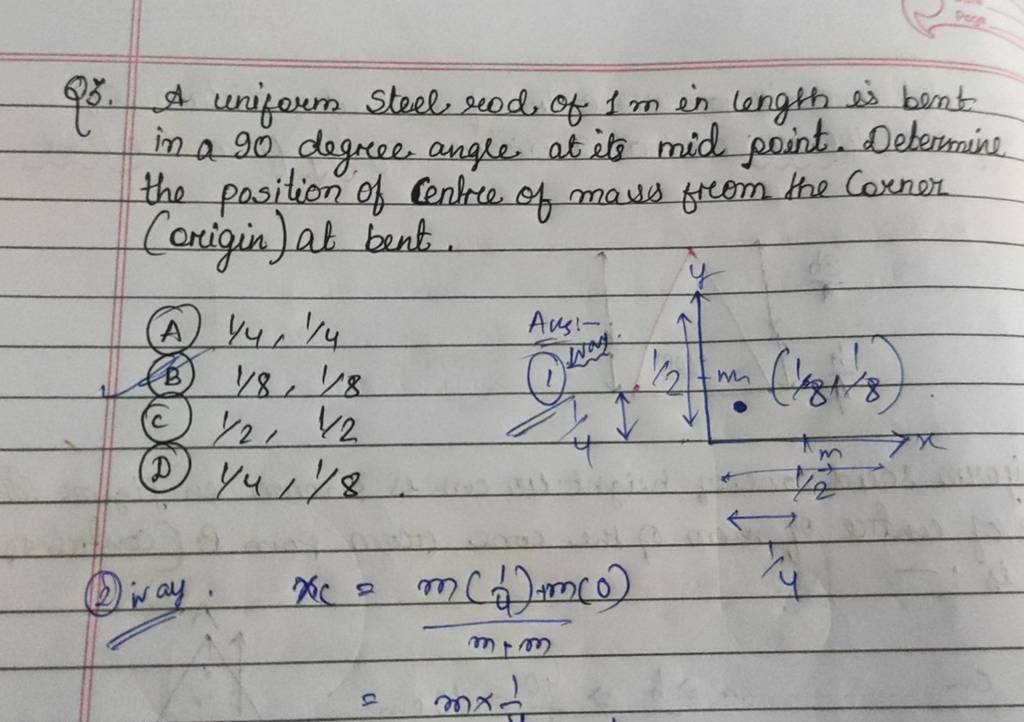 Q3. A uniform steel rod of 1m in length is bent
in a 90 degree angle at its mid point. Determine
the position of centre of mass from the Corner
(origin) at bent.
(A) 1/4, 1/4
(B) 1/8, 1/8
(C) 1/2, 1/2
(D) 1/4, 1/8.
Ans:-
(1) way.
y
1/2
m (1/8, 1/8)
1/4
x
m
1/2
1/4
(2) way. xc = m(1/4)+m(0)
m+m
= m×1